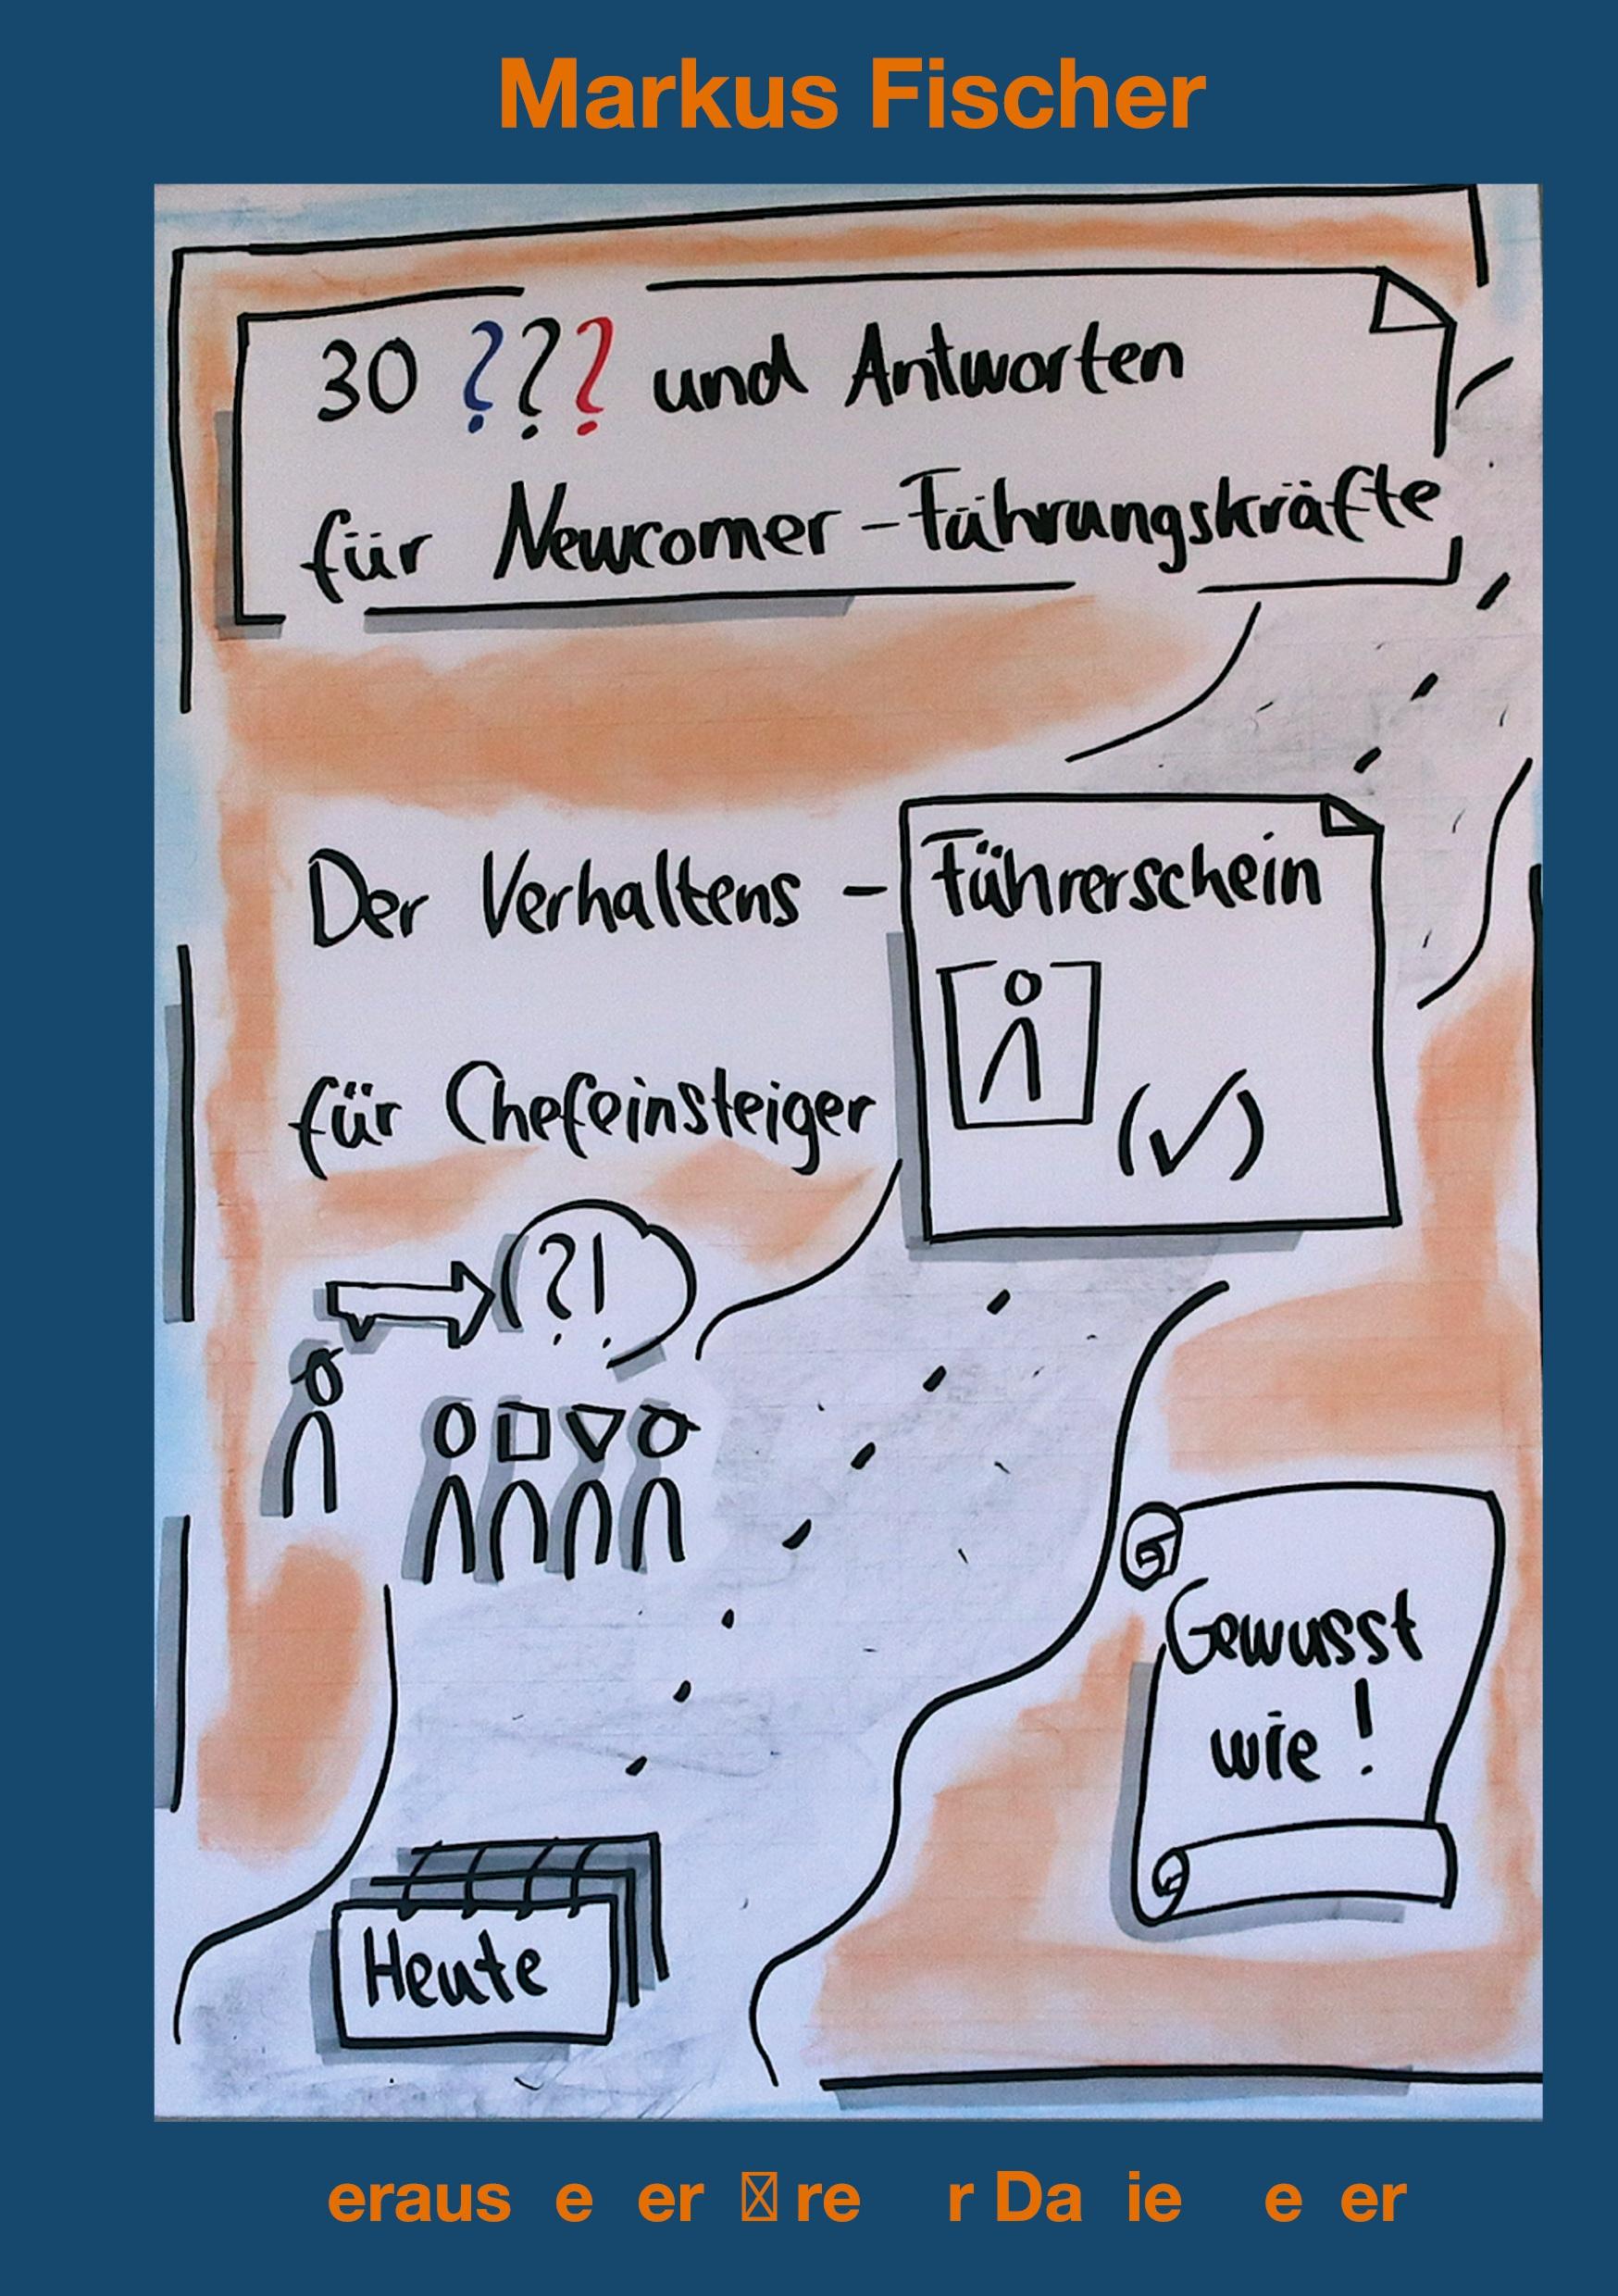 Markus Fischer
30 ??? und Antworten
für Newcomer-Führungskräfte
Der Verhaltens-Führerschein
(✓)
für Chefeinsteiger
?!
Gewusst
wie!
Heute